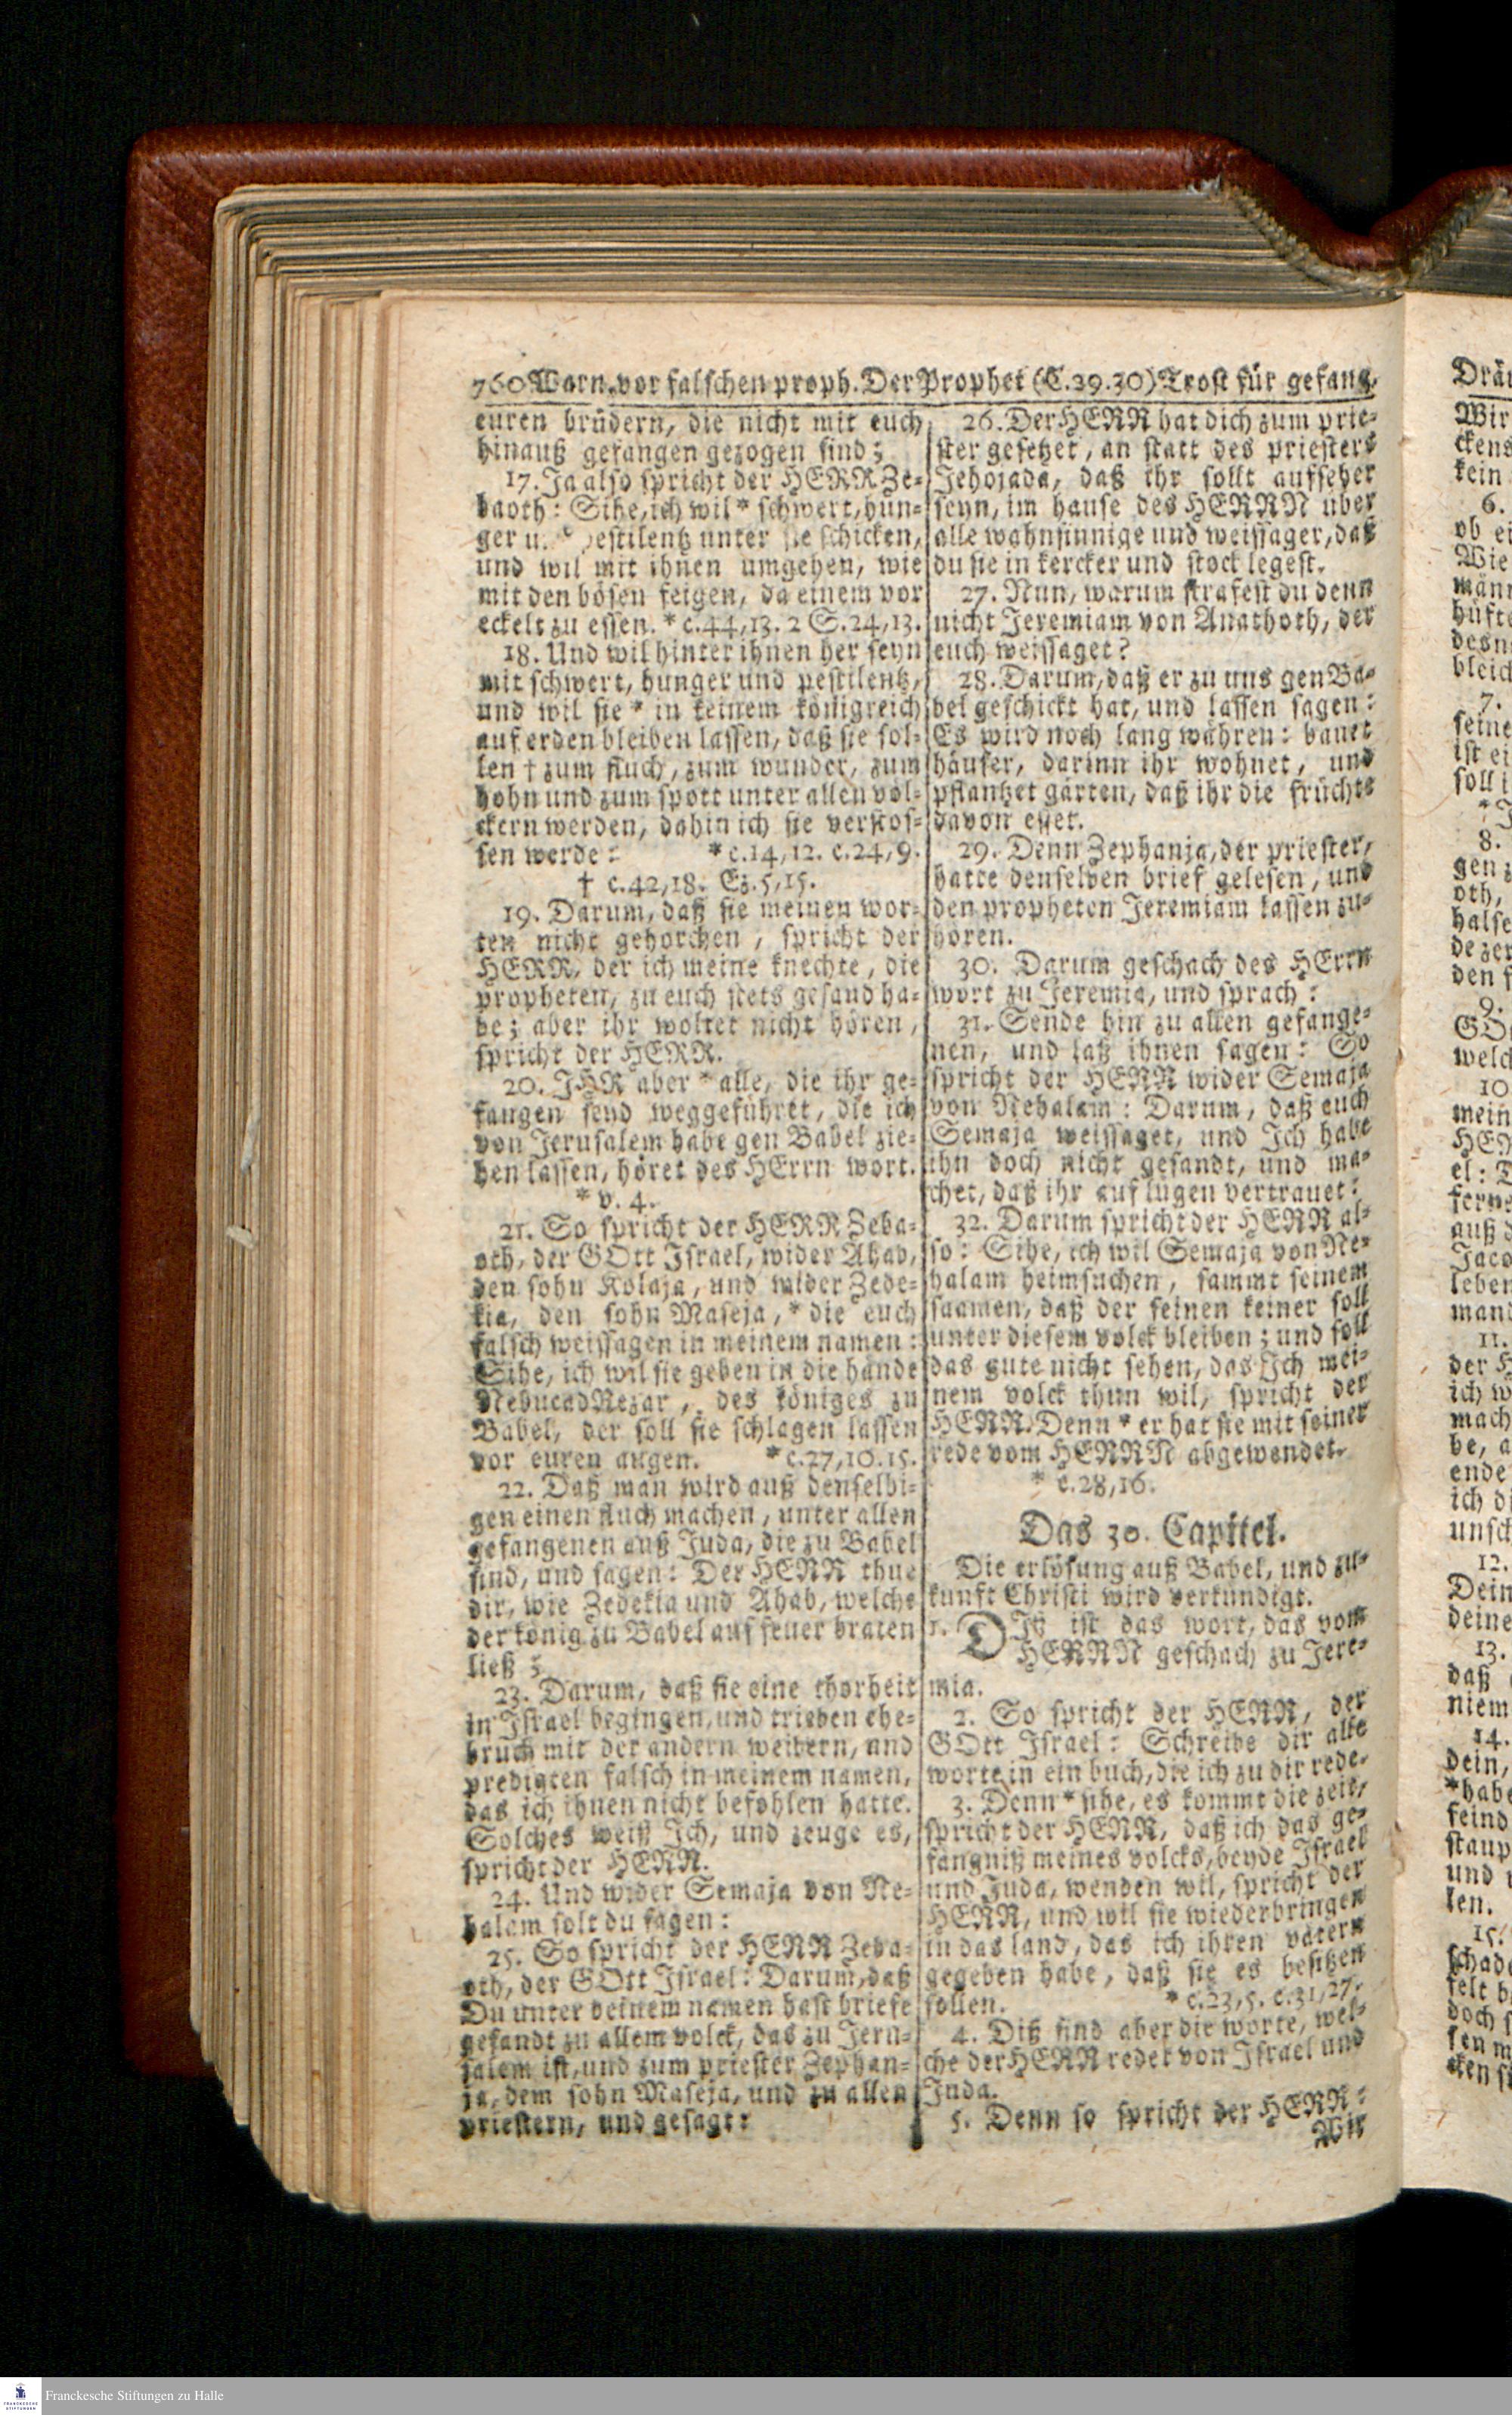 760 Warn. vor falschen proph. Der Prophet (C.29.30) Trost für gefang.
euren brüdern, die nicht mit euch
hinauß gefangen gezogen sind;
17. Ja also spricht der HERR Ze-
baoth: Sihe, ich wil * schwert, hun-
ger u. pestilentz unter sie schicken,
und wil mit ihnen umgehen, wie
mit den bösen feigen, da einem vor
eckelt zu essen. * c.44,13. 2 S.24,13.
18. Und wil hinter ihnen her seyn
mit schwert, hunger und pestilentz,
und wil sie * in keinem königreich
auf erden bleiben lassen, daß sie sol-
len † zum fluch, zum wunder, zum
hohn und zum spott unter allen völ-
ckern werden, dahin ich sie verstos-
sen werde: * c.14,12. c.24,9.
† c.42,18. Ez.5,15.
19. Darum, daß sie meinen wor-
ten nicht gehorchen, spricht der
HERR, der ich meine knechte, die
propheten, zu euch stets gesand ha-
be; aber ihr woltet nicht hören,
spricht der HERR.
20. IHR aber * alle, die ihr ge-
fangen seyd weggeführet, die ich
von Jerusalem habe gen Babel zie-
hen lassen, höret des HErrn wort.
* v. 4.
21. So spricht der HERR Zeba-
oth, der GOtt Israel, wider Ahab,
den sohn Kolaja, und wider Zede-
kia, den sohn Maseja, * die euch
falsch weissagen in meinem namen:
Sihe, ich wil sie geben in die hände
NebucadNezar, des königes zu
Babel, der soll sie schlagen lassen
vor euren augen. * c.27,10.15.
22. Daß man wird auß denselbi-
gen einen fluch machen, unter allen
gefangenen auß Juda, die zu Babel
sind, und sagen: Der HERR thue
dir, wie Zedekia und Ahab, welche
der könig zu Babel auf feuer braten
ließ;
23. Darum, daß sie eine thorheit
in Israel begingen, und trieben ehe-
bruch mit der andern weibern, und
predigten falsch in meinem namen,
das ich ihnen nicht befohlen hatte.
Solches weiß Ich, und zeuge es,
spricht der HERR.
24. Und wider Semaja von Ne-
halam solt du sagen:
25. So spricht der HERR Zeba-
oth, der GOtt Israel: Darum, daß
Du unter deinem namen hast briefe
gesandt zu allem volck, das zu Jeru-
salem ist, und zum priester Zephan-
ja, dem sohn Maseja, und zu allen
priestern, und gesagt:
26. Der HERR hat dich zum prie-
ster gesetzet, an statt des priesters
Jehojada, daß ihr sollt aufseher
seyn, im hause des HERRN über
alle wahnsinnige und weissager, daß
du sie in kercker und stock legest.
27. Nun, warum strafest du denn
nicht Jeremiam von Anathoth, der
euch weissaget?
28. Darum, daß er zu uns gen Ba-
bel geschickt hat, und lassen sagen:
Es wird noch lang währen: bauet
häuser, darinn ihr wohnet, und
pflantzet gärten, daß ihr die früchte
davon esset.
29. Denn Zephanja, der priester,
hatte denselben brief gelesen, und
den propheten Jeremiam lassen zu-
hören.
30. Darum geschach des HErrn
wort zu Jeremia, und sprach:
31. Sende hin zu allen gefange-
nen, und laß ihnen sagen: So
spricht der HERR wider Semaja
von Nehalam: Darum, daß euch
Semaja weissaget, und Ich habe
ihn doch nicht gesandt, und ma-
chet, daß ihr auf lügen vertrauet:
32. Darum spricht der HERR al-
so: Sihe, ich wil Semaja von Ne-
halam heimsuchen, sammt seinem
saamen, daß der seinen keiner soll
unter diesem volck bleiben; und soll
das gute nicht sehen, das Ich mei-
nem volck thun wil, spricht der
HERR. Denn * er hat sie mit seiner
rede vom HERRN abgewendet.
* c.28,16.
Das 30. Capitel.
Die erlösung auß Babel, und zu-
kunft Christi wird verkündigt.
1. DIß ist das wort, das vom
HERRN geschach zu Jere-
mia.
2. So spricht der HERR, der
GOtt Israel: Schreibe dir alle
worte in ein buch, die ich zu dir rede.
3. Denn * sihe, es kommt die zeit,
spricht der HERR, daß ich das ge-
fängniß meines volcks, beyde Israel
und Juda, wenden wil, spricht der
HERR, und wil sie wiederbringen
in das land, das ich ihren vätern
gegeben habe, daß sie es besitzen
sollen. * c.23,5. c.31,27.
4. Diß sind aber die worte, wel-
che der HERR redet von Israel und
Juda.
5. Denn so spricht der HERR:
Wir
Wir
ckens
kein
6.
ob ei
Wie
männ
hüfte
bleich
7.
seine
ist ei
soll i
8.
gen z
oth,
halse
de zer
den s
9.
welch
10.
mein
el: D
ferne
auß d
Jaco
leben
mand
11.
der H
ich w
mach
be, a
ende
ich di
unsch
12.
Dein
deine
13.
daß
niem
14.
dein,
*habe
feind
staup
und
len.
15.
Franckesche Stiftungen zu Halle
FRANCKESCHE
STIFTUNGEN